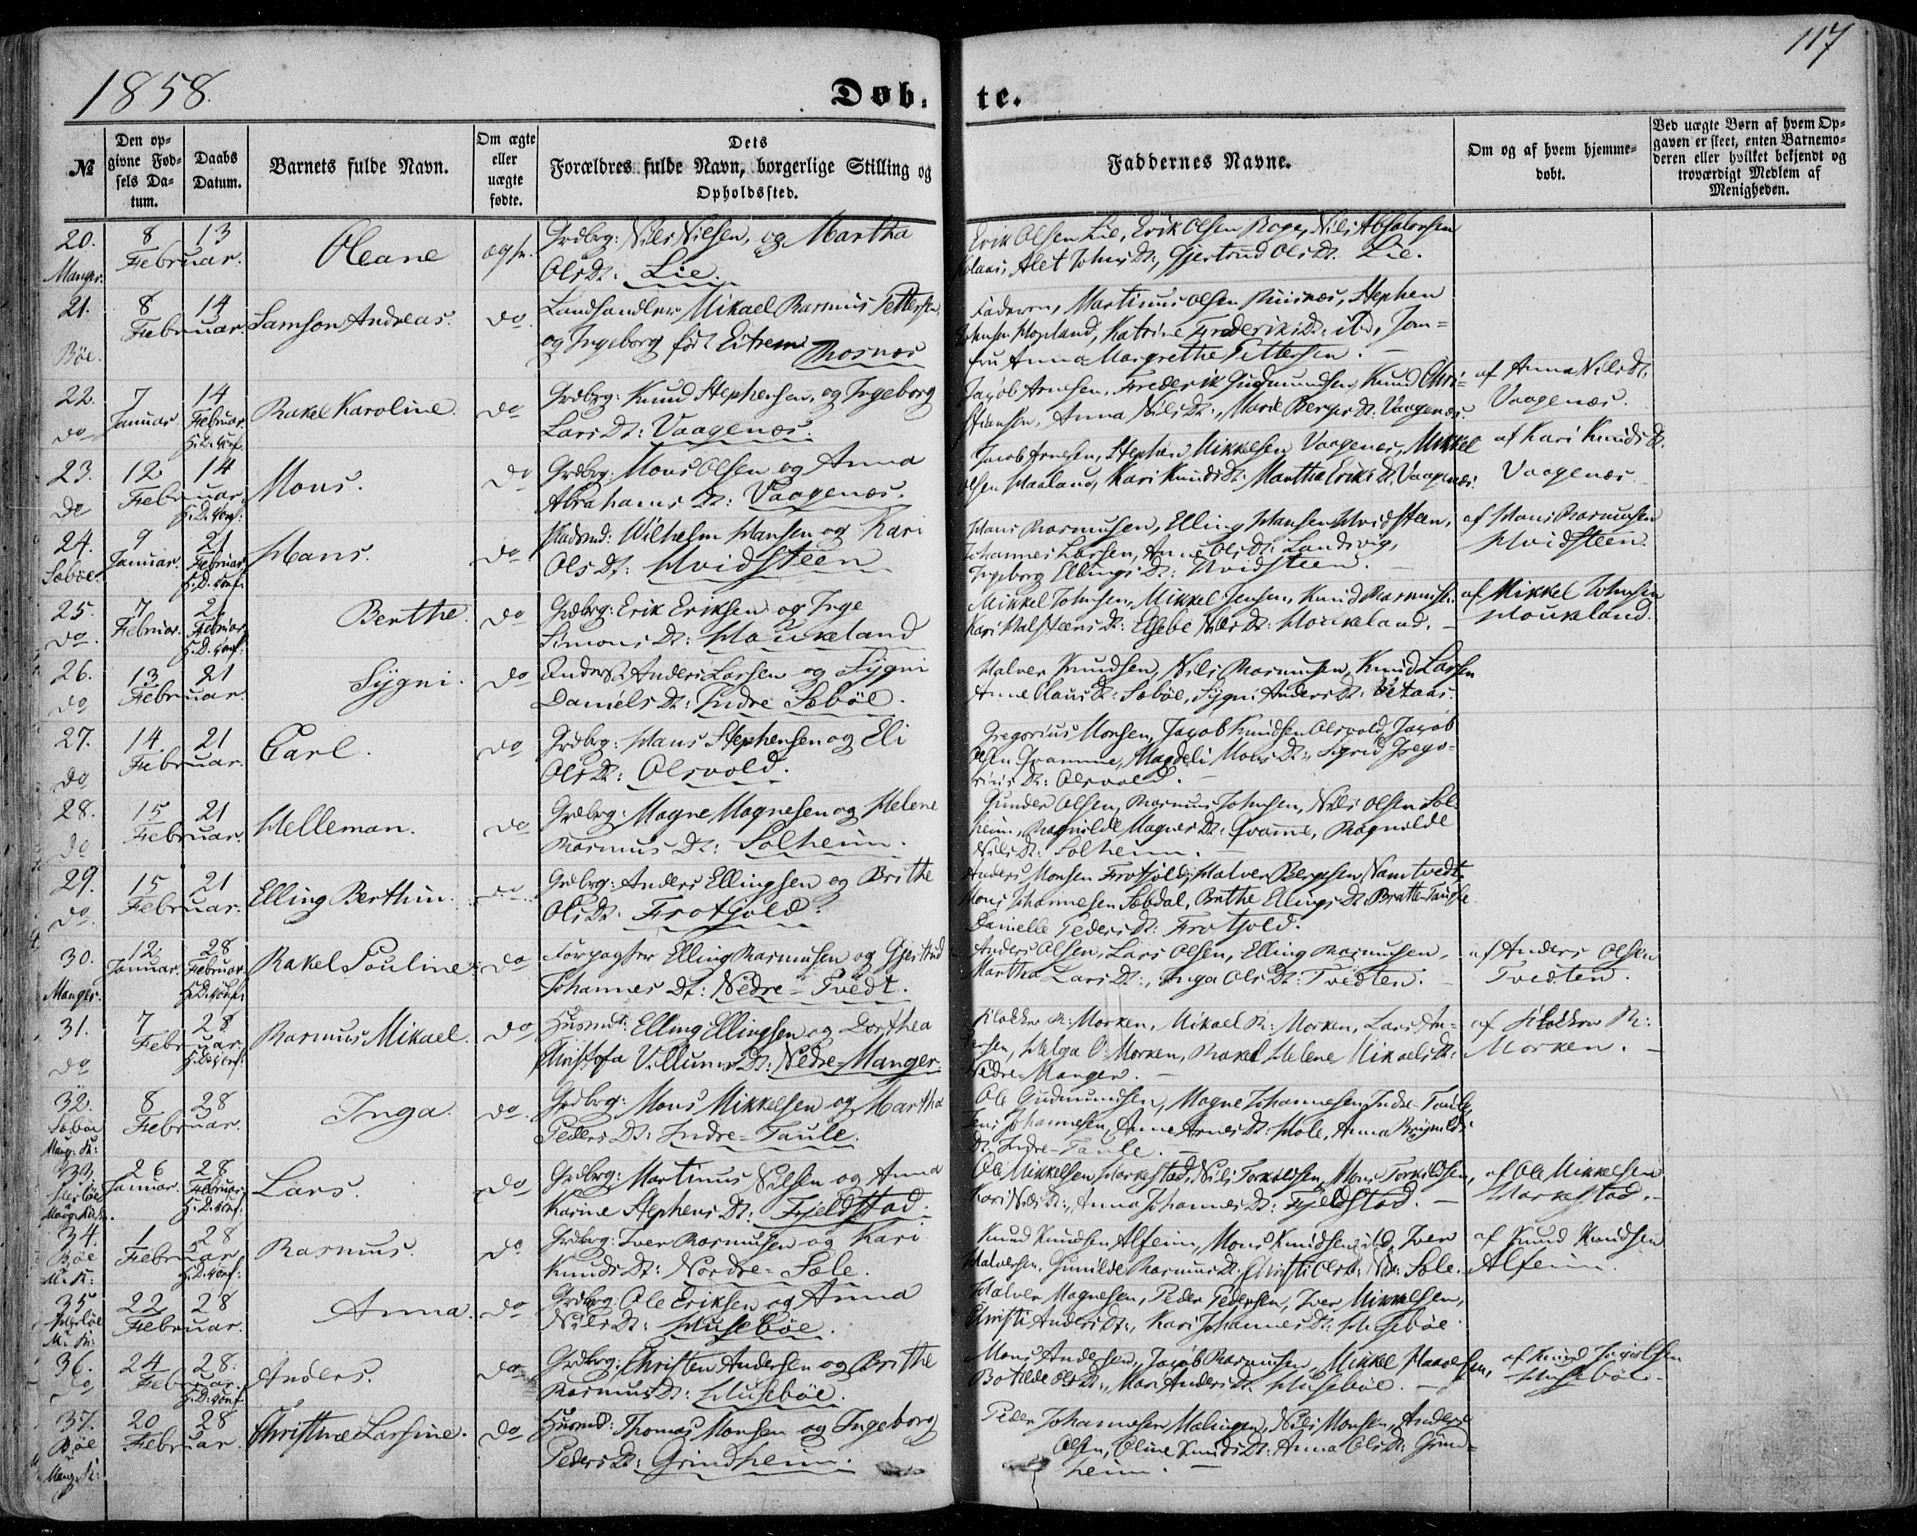 1858.
117
Døb. te.
№
Den opgivne Fødsels Datum.
Daabs Datum.
Barnets fulde Navn.
Om ægte eller uægte fødte.
Dets Forældres fulde Navn, borgerlige Stilling og Opholdssted.
Faddernes Navne.
Om og af hvem hjemmedøbt.
Ved uægte Børn af hvem Opgaven er skeet, enten Barnemoderen eller hvilket bekjendt og troværdigt Medlem af Menigheden.
20. Manger. 8 Februar. 13 Oleane ægte. Grdbrg: Nils Nilsen, og Martha
Olsdt: Lie.
Erik Olsen Lie, Erik Olsen, Nils Absalonsen
Alet Johnsdt., Gjertrud Olsdt. Lie.
21. Bøe. 8 Februar 14 Samson Andreas. do. Landhandler Mikael Rasmus Pettersen
og Ingeborg født Eitrem Rosnæs
Faderen, Martinus Olsen, Stephen
Johnsen Hopland, Katrine Frederiksdt: ibd, Jom-
fru Anna Margrethe Pettersen.
22. do 7 Januar. 14 Februar Rakel Karoline. do Grdbrg: Knud Stephensen, og Ingeborg
Larsdt: Vaagenæs.
Jacob Arnesen, Frederik Gudmundsen, Knud Chri-
stiansen, Anna Nilsdt., Mari Bergesdt: Vaagenæs.
af Anna Nilsdt.
Vaagenæs.
23. do 12 Februar. 14 Mons. do Grdbrg: Mons Olsen og Anna
Abrahamsdt: Vaagenæs.
Jacob Arnesen, Stephen Mikkelsen Vaagenæs, Mikkel
Olsen Haaland, Kari Knudsdt: Martha Eriksdt. Vaagenæs.
af Kari Knudsdt.
Vaagenæs.
24. Sæbøe. 9 Januar. 21 Februar Hans. do Wilhelm Hansen og Kari
Olsdt: Hvidsteen
Hans Rasmusen, Elling Hansen Hvidsteen,
Johannes Larsen, Anne Olsdt: Landsvig,
Ingeborg Ellingsdt: Hvidsteen.
af Hans Rasmusen
Hvidsteen.
25. do. 7 Februar. 21 Februar Berthe. do Grdbrg: Erik Eriksen og Inge
Simonsdt: Houkeland
Mikkel Johnsen, Mikkel Jensen, Knud Rasmuse.
Kari Halsteensdt: Elsebe Nilsdt: Houkeland.
af Mikkel Johnsen
Houkeland.
26. do 13 Februar. 21 Sygni. do Anders Larsen og Sygni
Danielsdt: Indre Sæbøe.
Halver Knudsen, Nils Rasmusen, Knud Larsen
Anne Clausdt: Sæbøe, Sygni Andersdt:
27. do 14. Februar. 21 Carl. do Grdbrg: Hans Stephensen og Eli
Olsdt: Olsvold.
Gregorius Monsen, Jacob Knudsen Olsvold, Jacob
Olsen Qvamme, Magdeli Monsdt., Sigrid Grego-
riusdt: Olsvold.
28. do 15 Februar. 21 Helleman. do Grdbrg: Magne Magnesen og Helene
Rasmusdt: Solheim.
Gunder Olsen, Rasmus Johnsen, Nils Olsen Sol-
heim, Ragnilde Magnesdt: Qvame, Ragnilde
Nilsdt: Solheim.
29. do 15 Februar. 21 Elling Berthin. do. Grdbrg: Anders Ellingsen og Brithe
Olsdt: Frotjold.
Anders Monsen Frotjold, Halver Bergesen Namtvedt,
Mons Johannesen Sæbdal, Brithe Ellingsdt. Bratte-Taule
Danielle Pedersdt: Frotjold.
30. Manger. 12 Januar. 28 Februar Rakel Pouline. do Forpagter Elling Rasmusen og Gjertrud
Johannesdt: Nedre-Tvedt.
Anders Olsen, Lars Olsen, Elling Rasmusen,
Martha Larsdt., Inga Olsdt: Tvedten.
af Anders Olsen
Tvedten.
31. do 7 Februar. 28 Rasmus Mikael. do Husmd: Elling Ellingsen og Dorthea
Christofa Villumsdt: Nedre-Manger.
Klokker R: Morken, Mikael R: Morken, Lars An-
dersen, Helga O: Morken, Rakel Helene Mikaelsdt:
Nedre-Manger.
af Klokker R:
Morken.
32. Sæbøe Mang: K: 8 Februar. 28 Inga. do. Grdbrg: Mons Mikkelsen og Martha
Pedersdt: Indre-Taule.
Ole Gudmundsen, Magne Johannesen Indre-Taule,
Jens Johannesen, Anne Arnesdt: Hole, Anna Brignilds-
dt. Indre-Taule.
33 26 Januar. 28 Februar Lars. do Grdbrg: Martinus Nilsen og Anna
Karine Stephensdt: Fjeldstad.
Ole Mikkelsen Harkestad, Nils Torkildsen, Mons Torkildsen,
Kari Nilsdt., Anna Johannesdt: Fjeldstad.
af Ole Mikkelsen
Harkestad.
34. Bøe M: K: 1 Februar 28 Rasmus. do Grdbrg: Iver Rasmusen og Kari
Knudsdt: Nordre-Sæle.
Knud Knudsen Alfeim, Mons Knudsen ibd, Iver
Halversen, Gunilde Rasmusdt, Christi Olsdt: Nd: Sæle.
af Knud Knudsen
Alfeim.
35 M: K: 22 Februar. 28 Anna. do Grdbrg: Ole Eriksen og Anna
Nilsdt: Husebøe.
Halver Magnesen, Peder Pedersen, Iver Mikkelsen,
Christi Andersdt., Kari Johannesdt: Husebøe.
36. do 24 Februar. 28. Anders. do Grdbrg: Christen Andersen og Brithe
Rasmusdt: Husebøe.
Mons Andersen, Jacob Rasmusen, Mikkel
Botilde Olsdt., Mari Andersdt. Husebøe.
af Knud
Husebøe.
37. Bøe Mang: K: 20 Februar 28 Christine Larsine. do Husmd: Thomas Monsen og Ingeborg
Pedersdt: Grindheim.
Peder Johannesen Malingen, Nils Monsen, Anders
Olsen, Oline Knudsdt: Anna Olsdt: Grind-
heim.